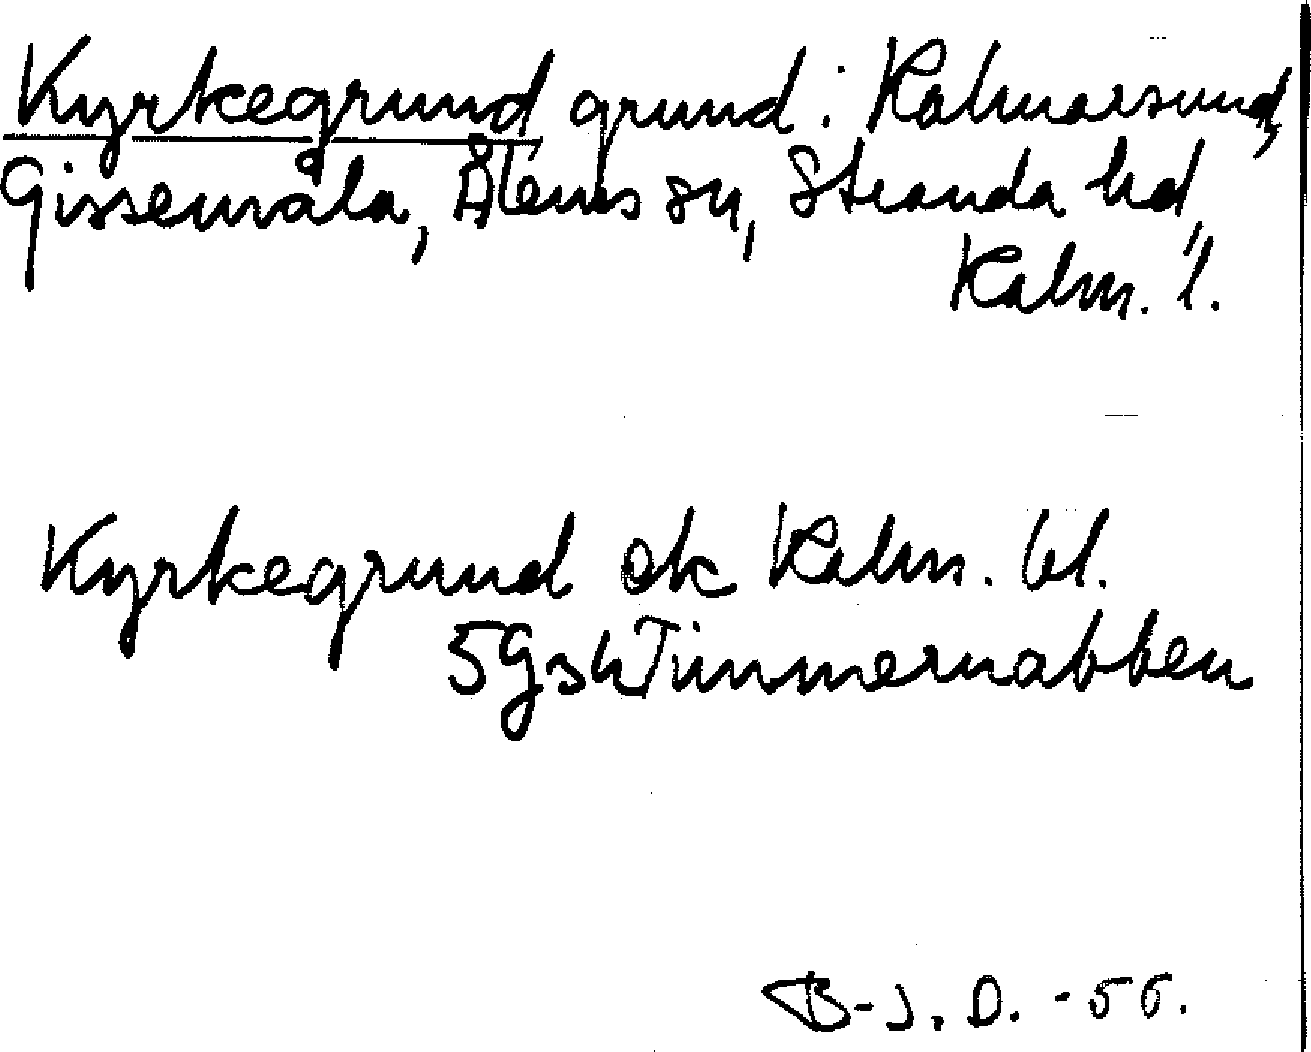 Kyrkegrund grund i Kalmarsund,
Gissenvåla, Ålems sn, Stranda hd,
Kalm. l.
Kyrkegrund ek Kalm. bl.
5G3h Timmernabben
B-J. D. -56.